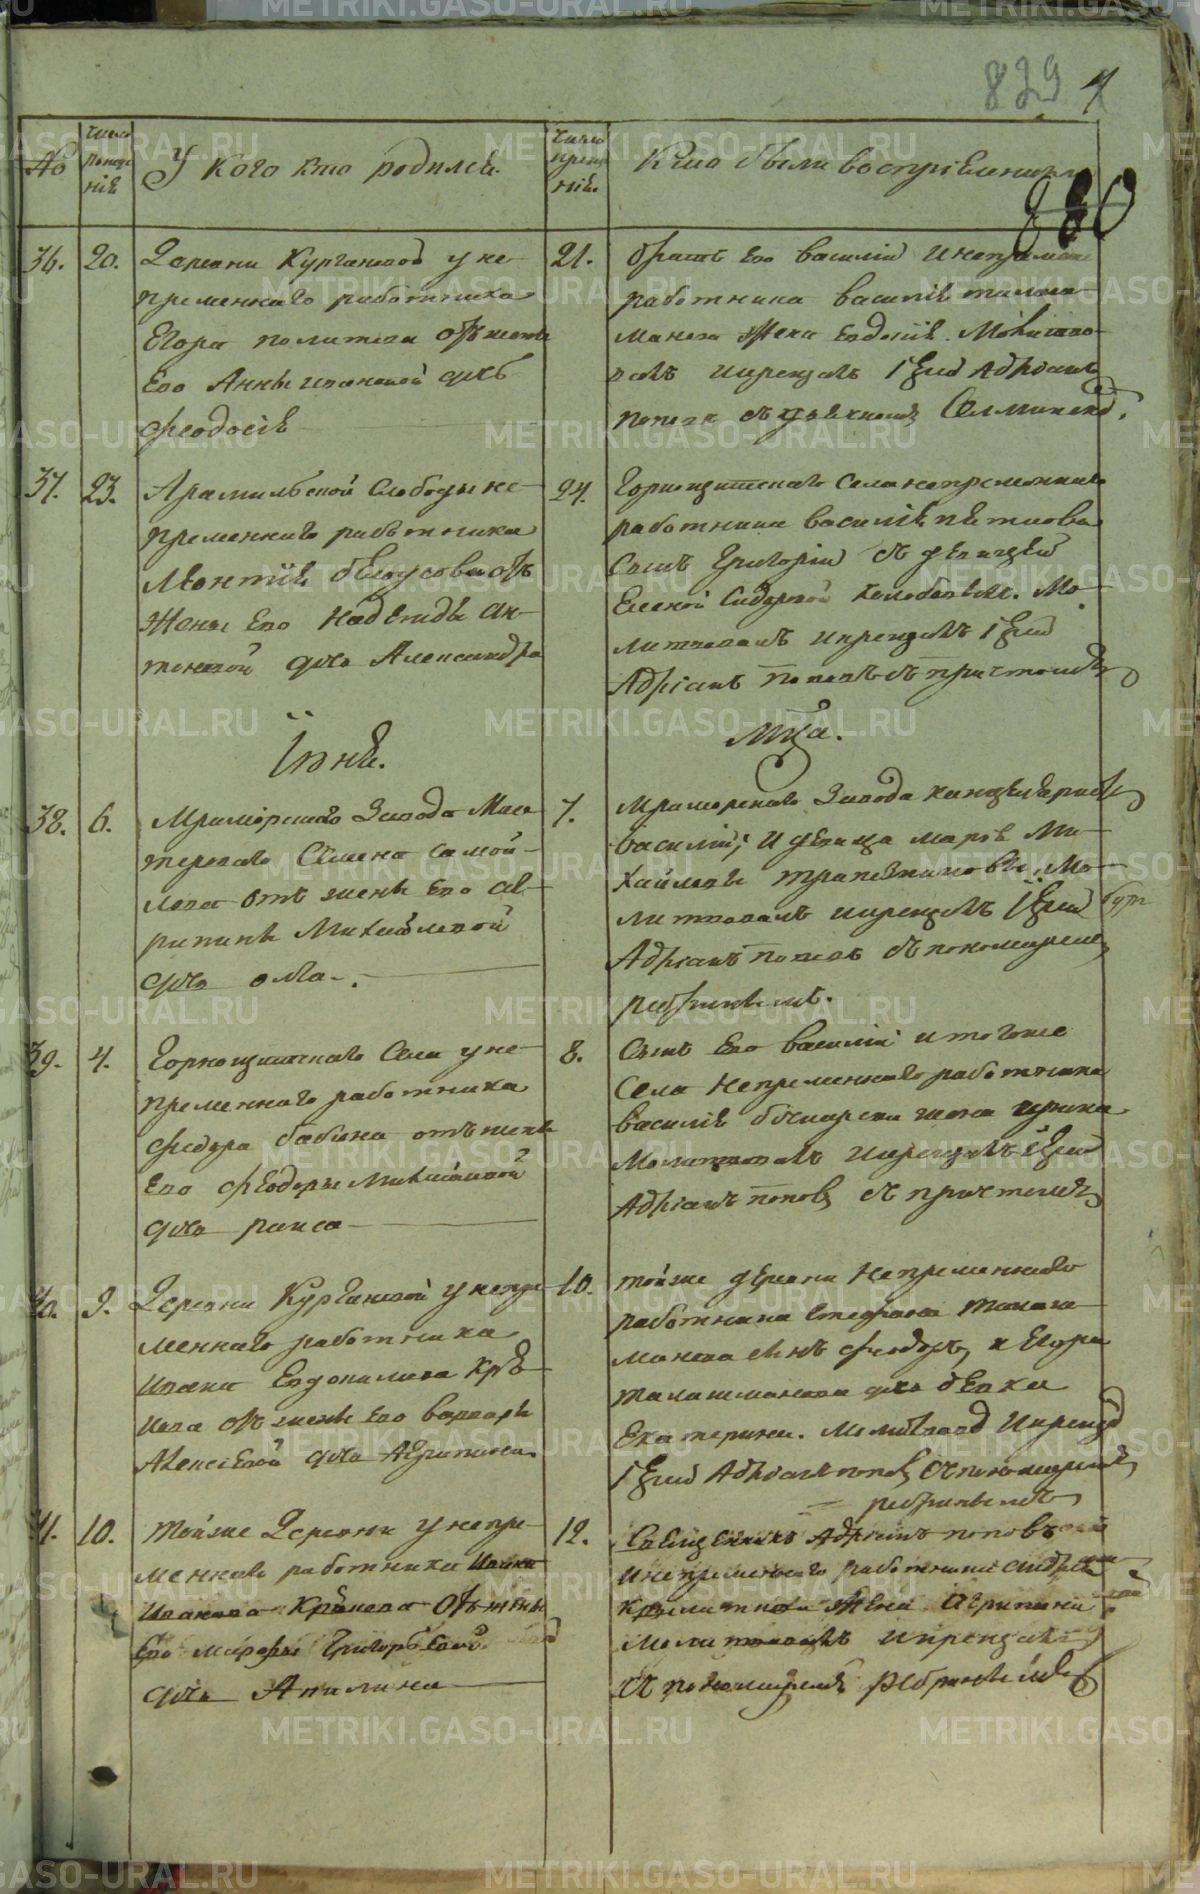 839
880
No
Число
рожде
ніѣ
У Кого кто родилсѣ.
Число
креще
ніѣ.
Кто были воспріемники
36. 20.
Деревни Кургановой у не-
пременнаго работника
Егора политова отъ жены
Его Анны ивановой дчь
феодосіѣ
21.
братъ Его василій и непременнаго
работника василіѣ талаш-
манова Жена Евдокіѣ. Молитво-
валъ и крещалъ Іерей Адріанъ
поповъ съ
37. 23.
Арамильской Слободы не-
пременнаго работника
Леонтіѣ белоусова отъ
Жены Его Надежды ан-
тоновой дчь Александра
24.
Горнощитскаго Села непременнаго
работника василіѣ пѣткова
Сынъ Григорій съ девицей
Еленой Сидоровой Мо-
литвовалъ и крещалъ Іерей
Адріанъ поповъ съ причтомъ
Іюнѣ.
Мца.
38. 6.
Мраморскаго Завода Мас-
тероваго Семена самой-
лова отъ жены Его аг-
рипины Михайловой
дчь оѳа.
7.
Мраморскаго Завода канцеляристъ
василій, и девица марѳа Ми-
хайловы трапезниковы. Мо-
литвовалъ и крещалъ Іерей
Адріанъ поповъ съ пономаремъ
ребринымъ.
39. 4.
Горнощитскаго Села у не-
пременнаго работника
федора бабина отъ жены
Его феодоры Микитиной
дчь раиса
8.
Сынъ Его василій и тогоже
Села Непременнаго работника
василіѣ жена ирина
Молитвовалъ и крещалъ Іерей
Адріанъ поповъ съ причтомъ
40. 9.
Деревни Кургановой у непре-
меннаго работника
ивана Евдокимова Крю-
кова отъ жены Его варвары
Алексѣевой дчь Агрипина
10.
тойже деревни Непременнаго
работника Стефана талаш-
манова сынъ феодоръ, и Егора
талашманова дчь девка
Екатерина. Молитвовалъ и крещалъ
Іерей Адріанъ поповъ съ пономаремъ
ребринымъ
41. 10.
тойже Деревни у непре-
меннаго работника ивана
иванова Крюкова отъ жены
Его марфы Григорьевой
дчь Акилина
12.
Священникъ Адріанъ поповъ
и непременнаго работника андрея
жена Агрипина
Молитвовалъ и крещалъ
съ пономаремъ ребринымъ
METRIKI.GASO-URAL.RU